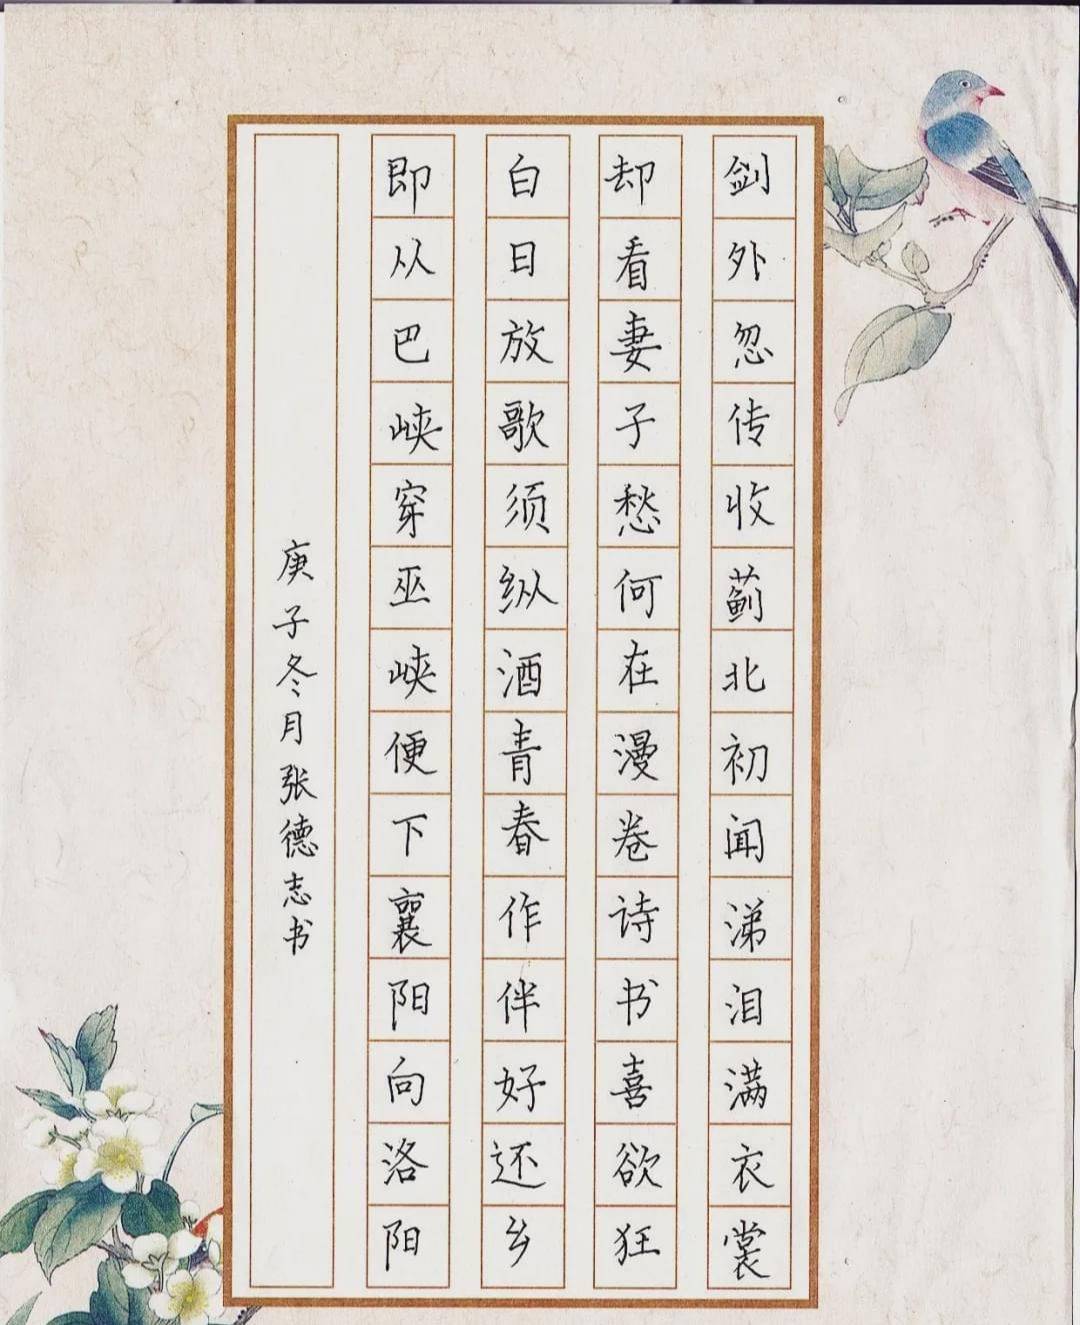 剑外忽传收蓟北初闻涕泪满衣裳
却看妻子愁何在漫卷诗书喜欲狂
白日放歌须纵酒青春作伴好还乡
即从巴峡穿巫峡便下襄阳向洛阳
庚子冬月张德志书